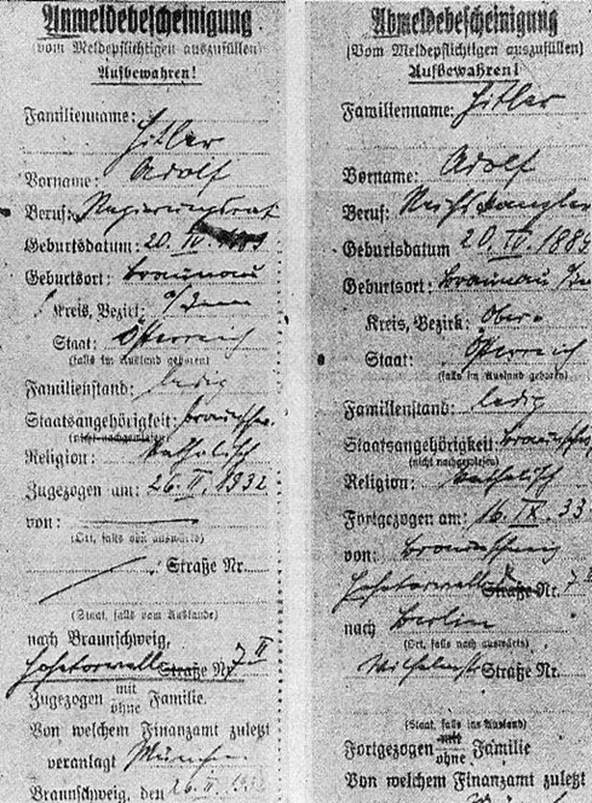 Anmeldebescheinigung
(vom Meldepflichtigen auszufüllen)
Aufbewahren!
Familienname:
Hitler
Vorname: Adolf
Beruf: Regierungsrat
Geburtsdatum: 20. IV. 1889
Geburtsort: Braunau
Kreis, Bezirk: a/Inn
Staat: Österreich
(falls im Ausland geboren)
Familienstand: ledig
Staatsangehörigkeit: Braunschw.
(nicht nachgewiesen)
Religion: katholisch
Zugezogen am: 26. II. 1932
von:
(Ort, falls von auswärts)
Straße Nr.
(Staat, falls vom Auslande)
nach Braunschweig,
Hohetorwall Straße Nr. 7 II
Zugezogen mit ohne Familie.
Von welchem Finanzamt zuletzt
veranlagt München
Braunschweig, den 26. II. 193
Abmeldebescheinigung
(Vom Meldepflichtigen auszufüllen)
Aufbewahren!
Familienname: Hitler
Vorname: Adolf
Beruf: Reichskanzler
Geburtsdatum 20. IV. 1889
Geburtsort: Braunau a/Inn
Kreis, Bezirk: Ober-
Staat: Österreich
(falls im Ausland geboren)
Familienstand: ledig
Staatsangehörigkeit: Braunschw
(nicht nachgewiesen)
Religion: katholisch
Fortgezogen am: 16. IX. 33
von: Braunschweig
Hohetorwall Straße Nr. 7 II
nach Berlin
(Ort, falls nach auswärts)
Wilhelmstr Straße Nr.
(Staat, falls ins Ausland)
Fortgezogen mit ohne Familie
Von welchem Finanzamt zuletzt